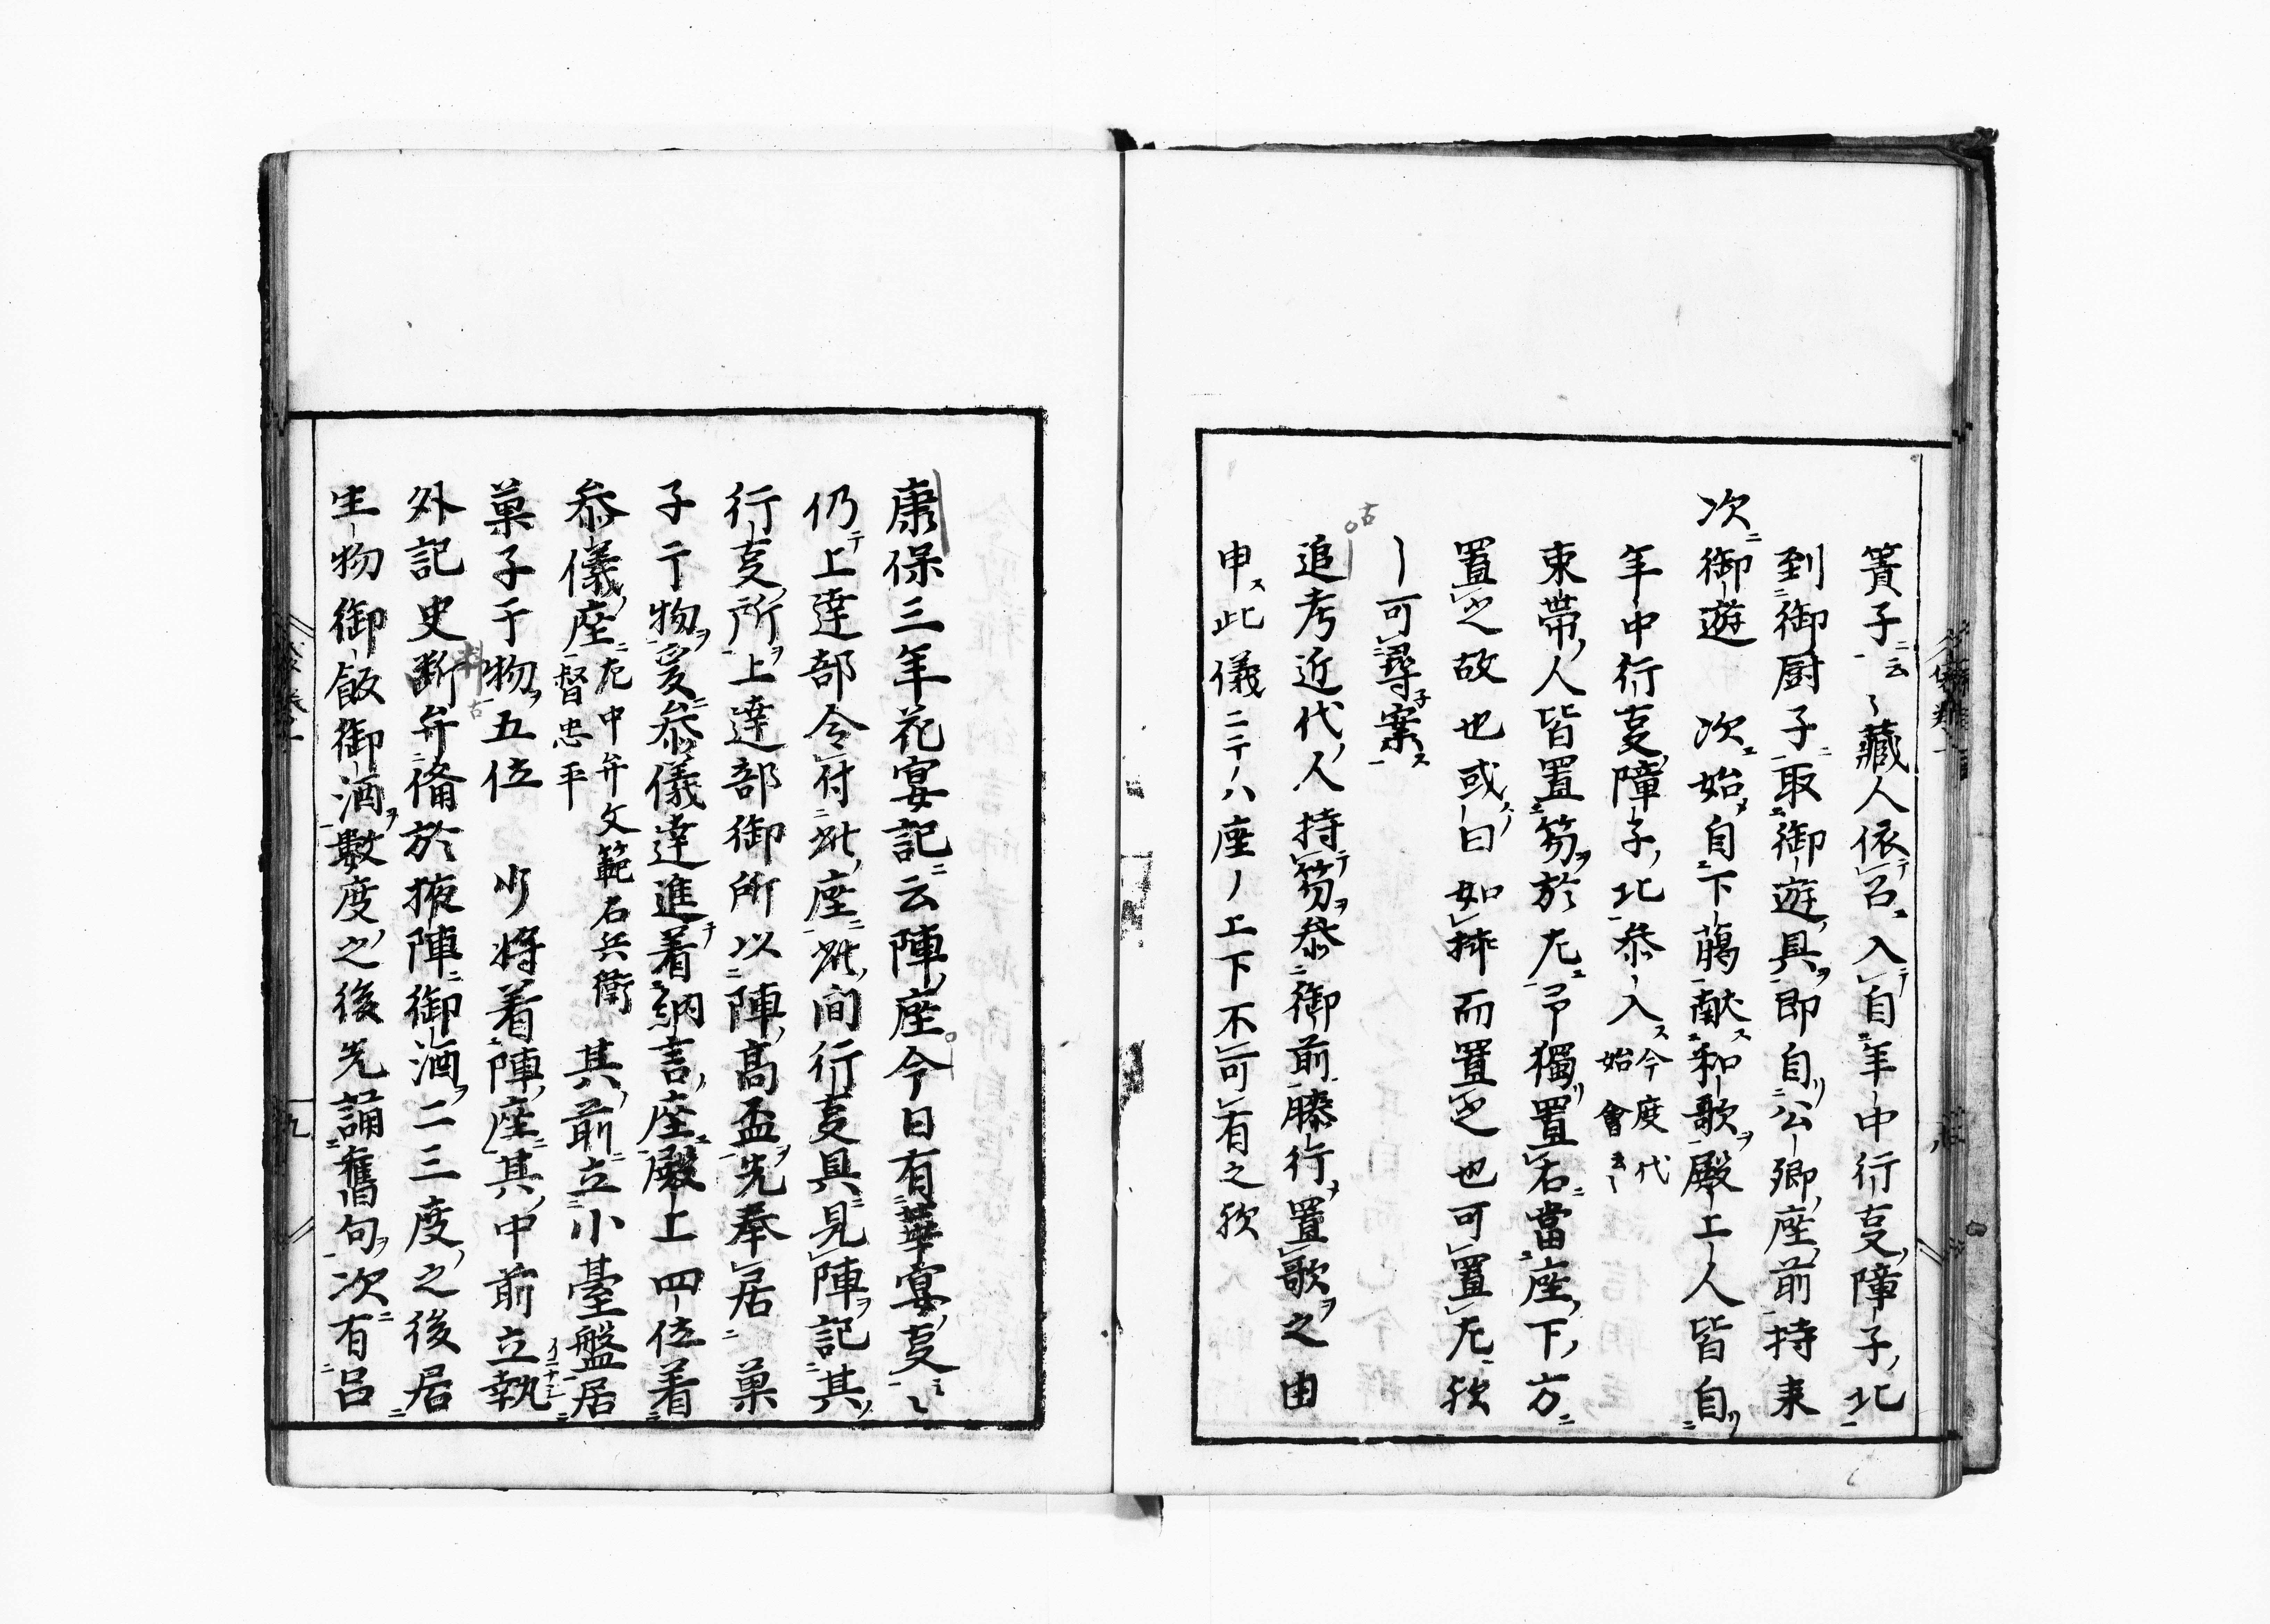 簀子云〻藏人依召入自年中行叓障子北
到御厨子取御遊具即自公卿座前持来
次御遊　次始自下﨟献和歌殿上人皆自
年中行叓障子北参入今度代始會云〻
束帶人皆置笏於左予獨置右當座下方
置之故也或曰如挿而置之也可置左欤
可尋案
追考近代人持笏参御前膝行置歌之由
申此儀ニテハ座ノ上下不可有之欤
康保三年花宴記云陣座今日有華宴叓〻
仍上達部令付此座此间行叓具見陣記其
行叓所上達部御所以陣高盃先奉居菓
子干物爰参儀達進着納言座殿上四位着
参儀座左中弁文範右兵衛督忠平其前立小臺盤居
菓子干物五位　少将着陣座其中前立執
外記史断弁備於掖陣御酒二三度之後居
生物御飯御酒數度之後先誦舊句次有呂
九